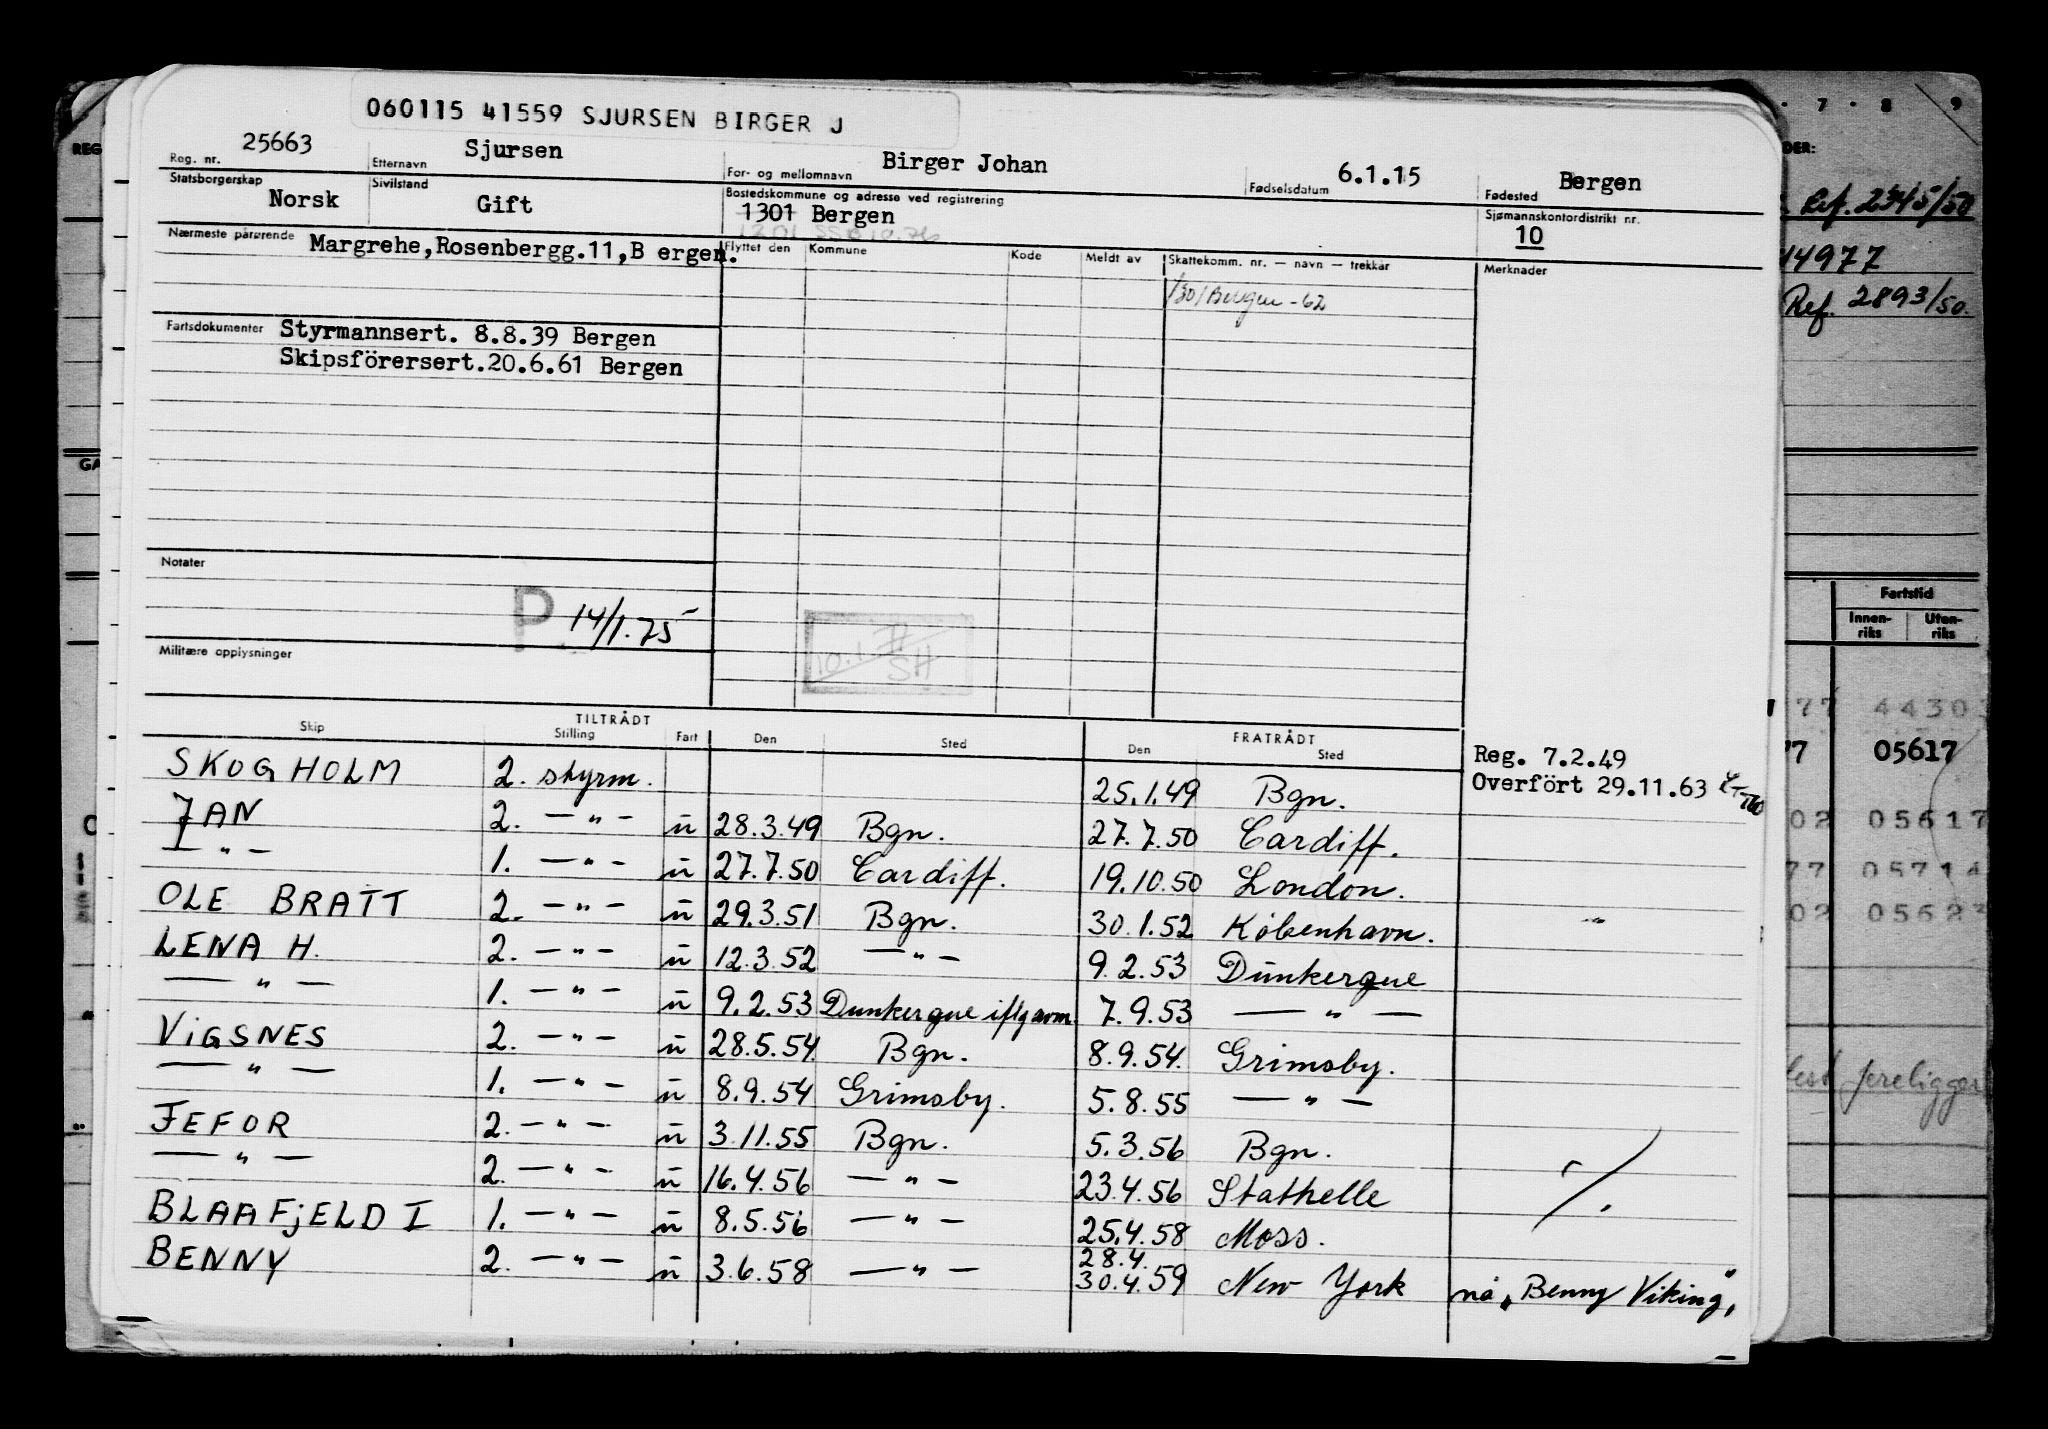 060115 41559 SJURSEN BIRGER J
Reg. nr. 25663 Etternavn Sjursen For- og mellomnavn Birger Johan Fødselsdatum 6.1.15 Fødested Bergen
Statsborgerskap Norsk Sivilstand Gift Bostedskommune og adresse ved registrering 1301 Bergen Sjømannskontordistrikt nr. 10
Nærmeste pårørende Margrehe,Rosenbergg.11,B ergen.
Flyttet den Kommune Kode Meldt av Skattekomm. nr. — navn — trekkår Merknader
1301 Bergen - 62
Fartsdokumenter Styrmannsert. 8.8.39 Bergen
Skipsförersert.20.6.61 Bergen
Notater
P 14/1.75
SH
Militære opplysninger
TILTRÅDT FRATRÅDT
Skip Stilling Fart Den Sted Den Sted
Reg. 7.2.49
Overfört 29.11.63
SKOGHOLM 2. styrm. 25.1.49 Bgn.
JAN 2. — " — u 28.3.49 Bgn. 27.7.50 Cardiff.
— " — 1. — " — u 27.7.50 Cardiff. 19.10.50 London.
OLE BRATT 2. — " — u 29.3.51 Bgn. 30.1.52 København.
LENA H. 2. — " — u 12.3.52 — " — 9.2.53 Dunkerque
— " — 1. — " — u 9.2.53 Dunkerque iflg avm. 7.9.53 — " —
ViGSNES 2. — " — u 28.5.54 Bgn. 8.9.54 Grimsby.
— " — 1. — " — u 8.9.54 Grimsby. 5.8.55 — " —
FEFOR 2. — " — u 3.11.55 Bgn. 5.3.56 Bgn.
— " — 2. — " — u 16.4.56 — " — 23.4.56 Stathelle
BLAAFjELD I 1. — " — u 8.5.56 — " — 25.4.58 Moss.
28.4.
BENNY 2. — " — u 3.6.58 — " — 30.4.59 New York nå „Benny Viking"
7 · 8 9
DER:
Ref. 2345/50
44977
Ref. 2893/50.
Fartstid
Innen-riks Uten-riks
77 4430
77 05617
02 05617
77 05714
02 0562
foreligger